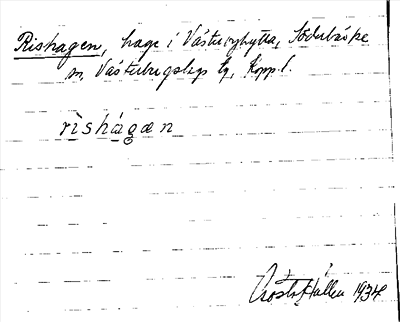 Rishagen, hage i Västerbyhytta, Söderbärke
sn Västerbergslags tg, Kopp.l.
rishagæn
Gösta Hallén 1934